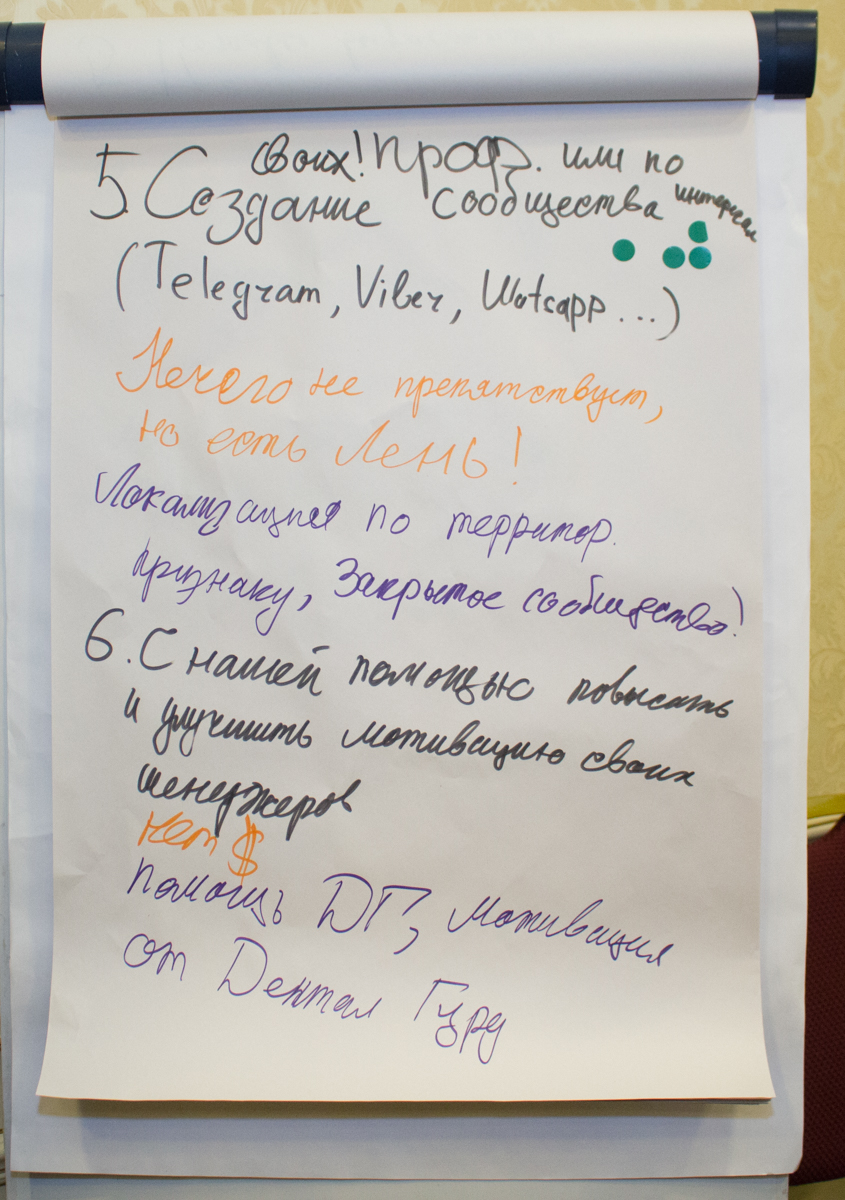 своих! проф. или по
5. Создание сообщества интересам
(Telegram, Viber, Wotcapp...)
Нечего не препятствует,
но есть Лень!
Локализация по территор.
признаку, Закрытое сообщество!
6. С нашей помощью повысать
и улучшить мотивацию своих
менеджеров
нет $
помощь ДГ, мотивация
от Дентал Гуру